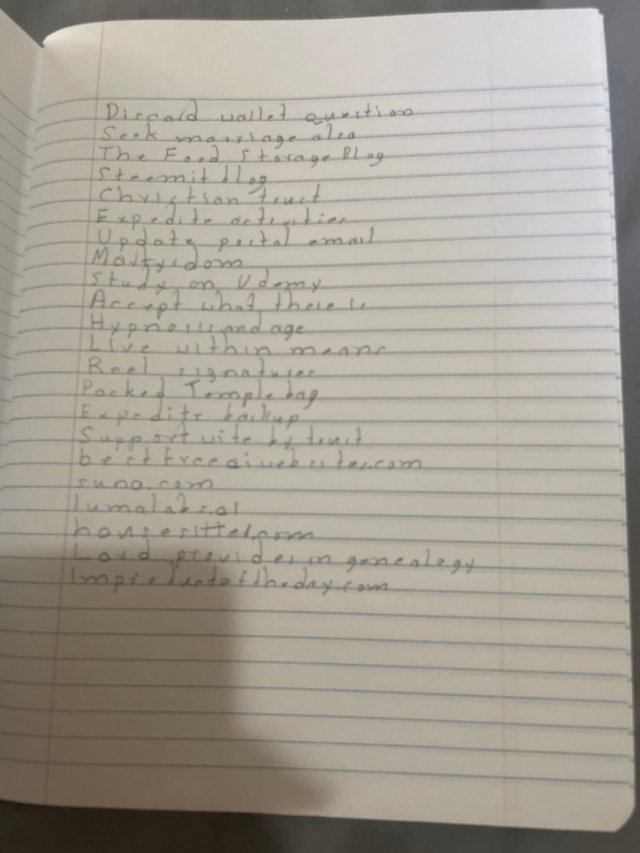 Discard wallet question
Seek marriage also
The Food Storage Blog
Steemit blog
Christian trust
Expedite activities
Update postal email
Martyrdom
Study on Udemy
Accept what there is
Hypnosis and age
Live within means
Reel signatures
Packed Temple bag
Expedite backup
Support wife by trust
bestfreeaiwebsites.com
suno.com
lumalabs.ai
housesitter.com
Lord provides in genealogy
improductoftheday.com